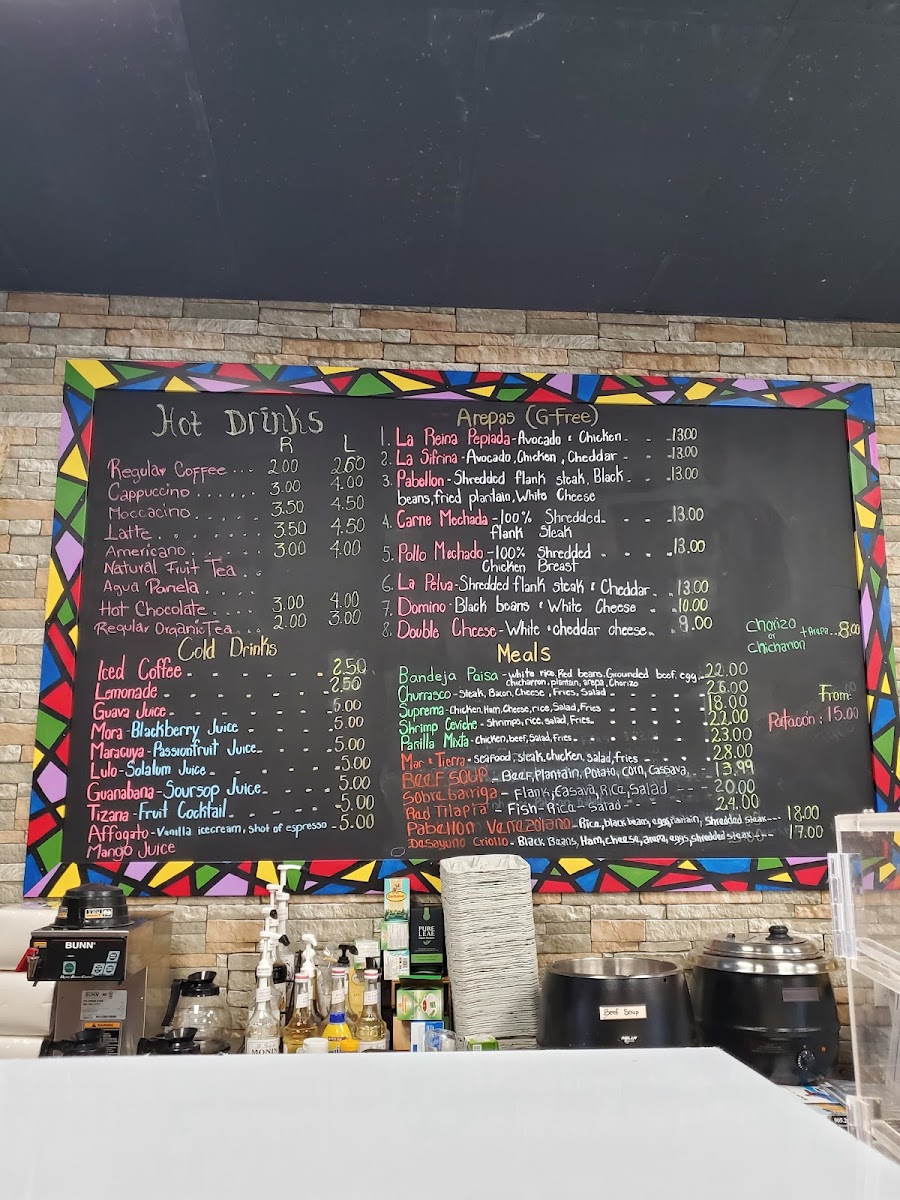 Hot Drinks
R L
Regular Coffee ... 2.00 2.60
Cappuccino ...... 3.00 4.00
Moccacino ..... 3.50 4.50
Latte ....... 3.50 4.50
Americano ...... 3.00 4.00
Natural Fruit Tea ..
Agua Panela ....
Hot Chocolate .... 3.00 4.00
Regular Organic Tea ... 2.00 3.00
Cold Drinks
Iced Coffee 2.50
Lemonade 2.50
Guava Juice 5.00
Mora - Blackberry Juice 5.00
Maracuya - Passionfruit Juice 5.00
Lulo - Solalum Juice 5.00
Guanabana - Soursop Juice 5.00
Tizana - Fruit Cocktail 5.00
Affogato - Vanilla icecream, shot of espresso - 5.00
Mango Juice
Arepas (G-Free)
1. La Reina Pepiada - Avocado & Chicken 13.00
2. La Sifrina - Avocado, Chicken, Cheddar 13.00
3. Pabellon - Shredded flank steak, Black 13.00
beans, fried plantain, White Cheese
4. Carne Mechada - 100% Shredded 13.00
flank Steak
5. Pollo Mechado - 100% Shredded 13.00
Chicken Breast
6. La Pelua - Shredded flank steak & Cheddar 13.00
7. Domino - Black beans & White Cheese 10.00
8. Double Cheese - White & cheddar cheese 9.00
Chorizo
or
Chicharron
+ Arepa ... 8.00
Meals
Bandeja Paisa - white rice, Red beans, Grounded beef, egg 22.00
chicharron, plantain, arepa, Chorizo
Churrasco - Steak, Bacon, Cheese, Fries, Salad 26.00
Suprema - Chicken, Ham, Cheese, rice, Salad, Fries 18.00
Shrimp Ceviche - Shrimps, rice, salad, Fries 22.00
Parilla Mixta - chicken, beef, Salad, Fries 23.00
Mar & Tierra - seafood, steak, chicken, salad, fries 28.00
BEEF SOUP - Beef, Plantain, Potato, Corn, Cassava, 13.99
Sobrebarriga - Flank, Casava, Rice, Salad 20.00
Red Tilapia - Fish - Rice - Salad 24.00
Pabellon Venezolano - Rice, black beans, eggs, Plantain, Shredded steak 18.00
Desayuno Criollo - Black Beans, Ham, cheese, arepa, eggs, shredded steak 17.00
From:
Patacón : 15.00
BUNN
MONIN
PURE
LEAF
Beef Soup